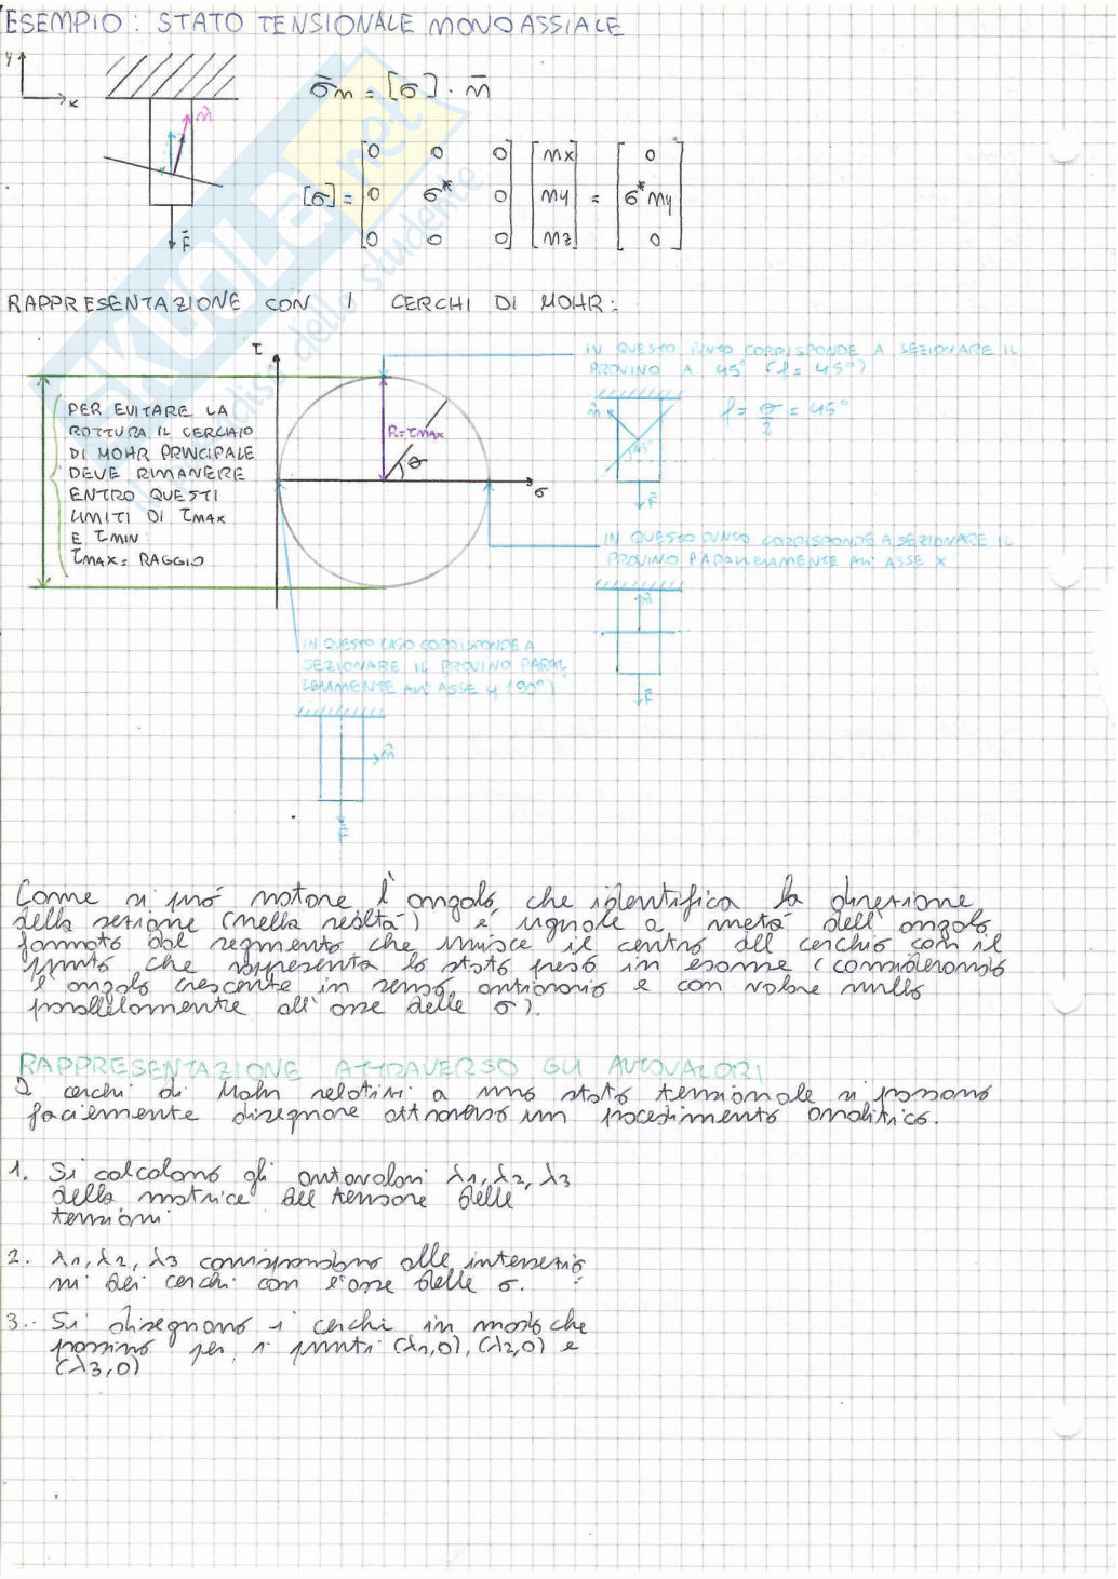 ESEMPIO: STATO TENSIONALE MONOASSIALE
y
x
n̄
F̄
σ̄n = [σ] · n̄
[σ] = [0 0 0; 0 σ* 0; 0 0 0] [nx; ny; nz] = [0; σ*ny; 0]
RAPPRESENTAZIONE CON I CERCHI DI MOHR:
τ
IN QUESTO PUNTO CORRISPONDE A SEZIONARE IL
PROVINO A 45°
= 45°)
PER EVITARE LA
ROTTURA IL CERCHIO
DI MOHR PRINCIPALE
DEVE RIMANERE
ENTRO QUESTI
LIMITI DI τMAX
E τMIN
τMAX = RAGGIO
R=τMAX
θ
σ
n̄
θ/2 = 45°
F̄
IN QUESTO PUNTO CORRISPONDE A SEZIONARE IL
PROVINO PARALLELAMENTE ALL' ASSE X
n̄
F̄
IN QUESTO CASO CORRISPONDE A
SEZIONARE IL PROVINO PARAL
LELAMENTE ALL' ASSE y (90°)
n̄
F̄
Come si può notare l'angolo che identifica la direzione
della sezione (nella realtà) è uguale a metà dell'angolo
formato dal segmento che unisce il centro del cerchio con il
punto che rappresenta lo stato preso in esame (considerando
l'angolo crescente in senso antiorario e con valore nullo
parallelamente all'asse delle σ).
RAPPRESENTAZIONE ATTRAVERSO GLI AUTOVALORI
I cerchi di Mohr relativi a uno stato tensionale si possono
facilmente disegnare attraverso un procedimento analitico.
1. Si calcolano gli autovalori λ1, λ2, λ3
della matrice del tensore delle
tensioni.
2. λ1, λ2, λ3 corrispondono alle intersezio
ni dei cerchi con l'asse delle σ.
3. Si disegnano i cerchi in modo che
passino per i punti (λ1,0), (λ2,0) e
(λ3,0)